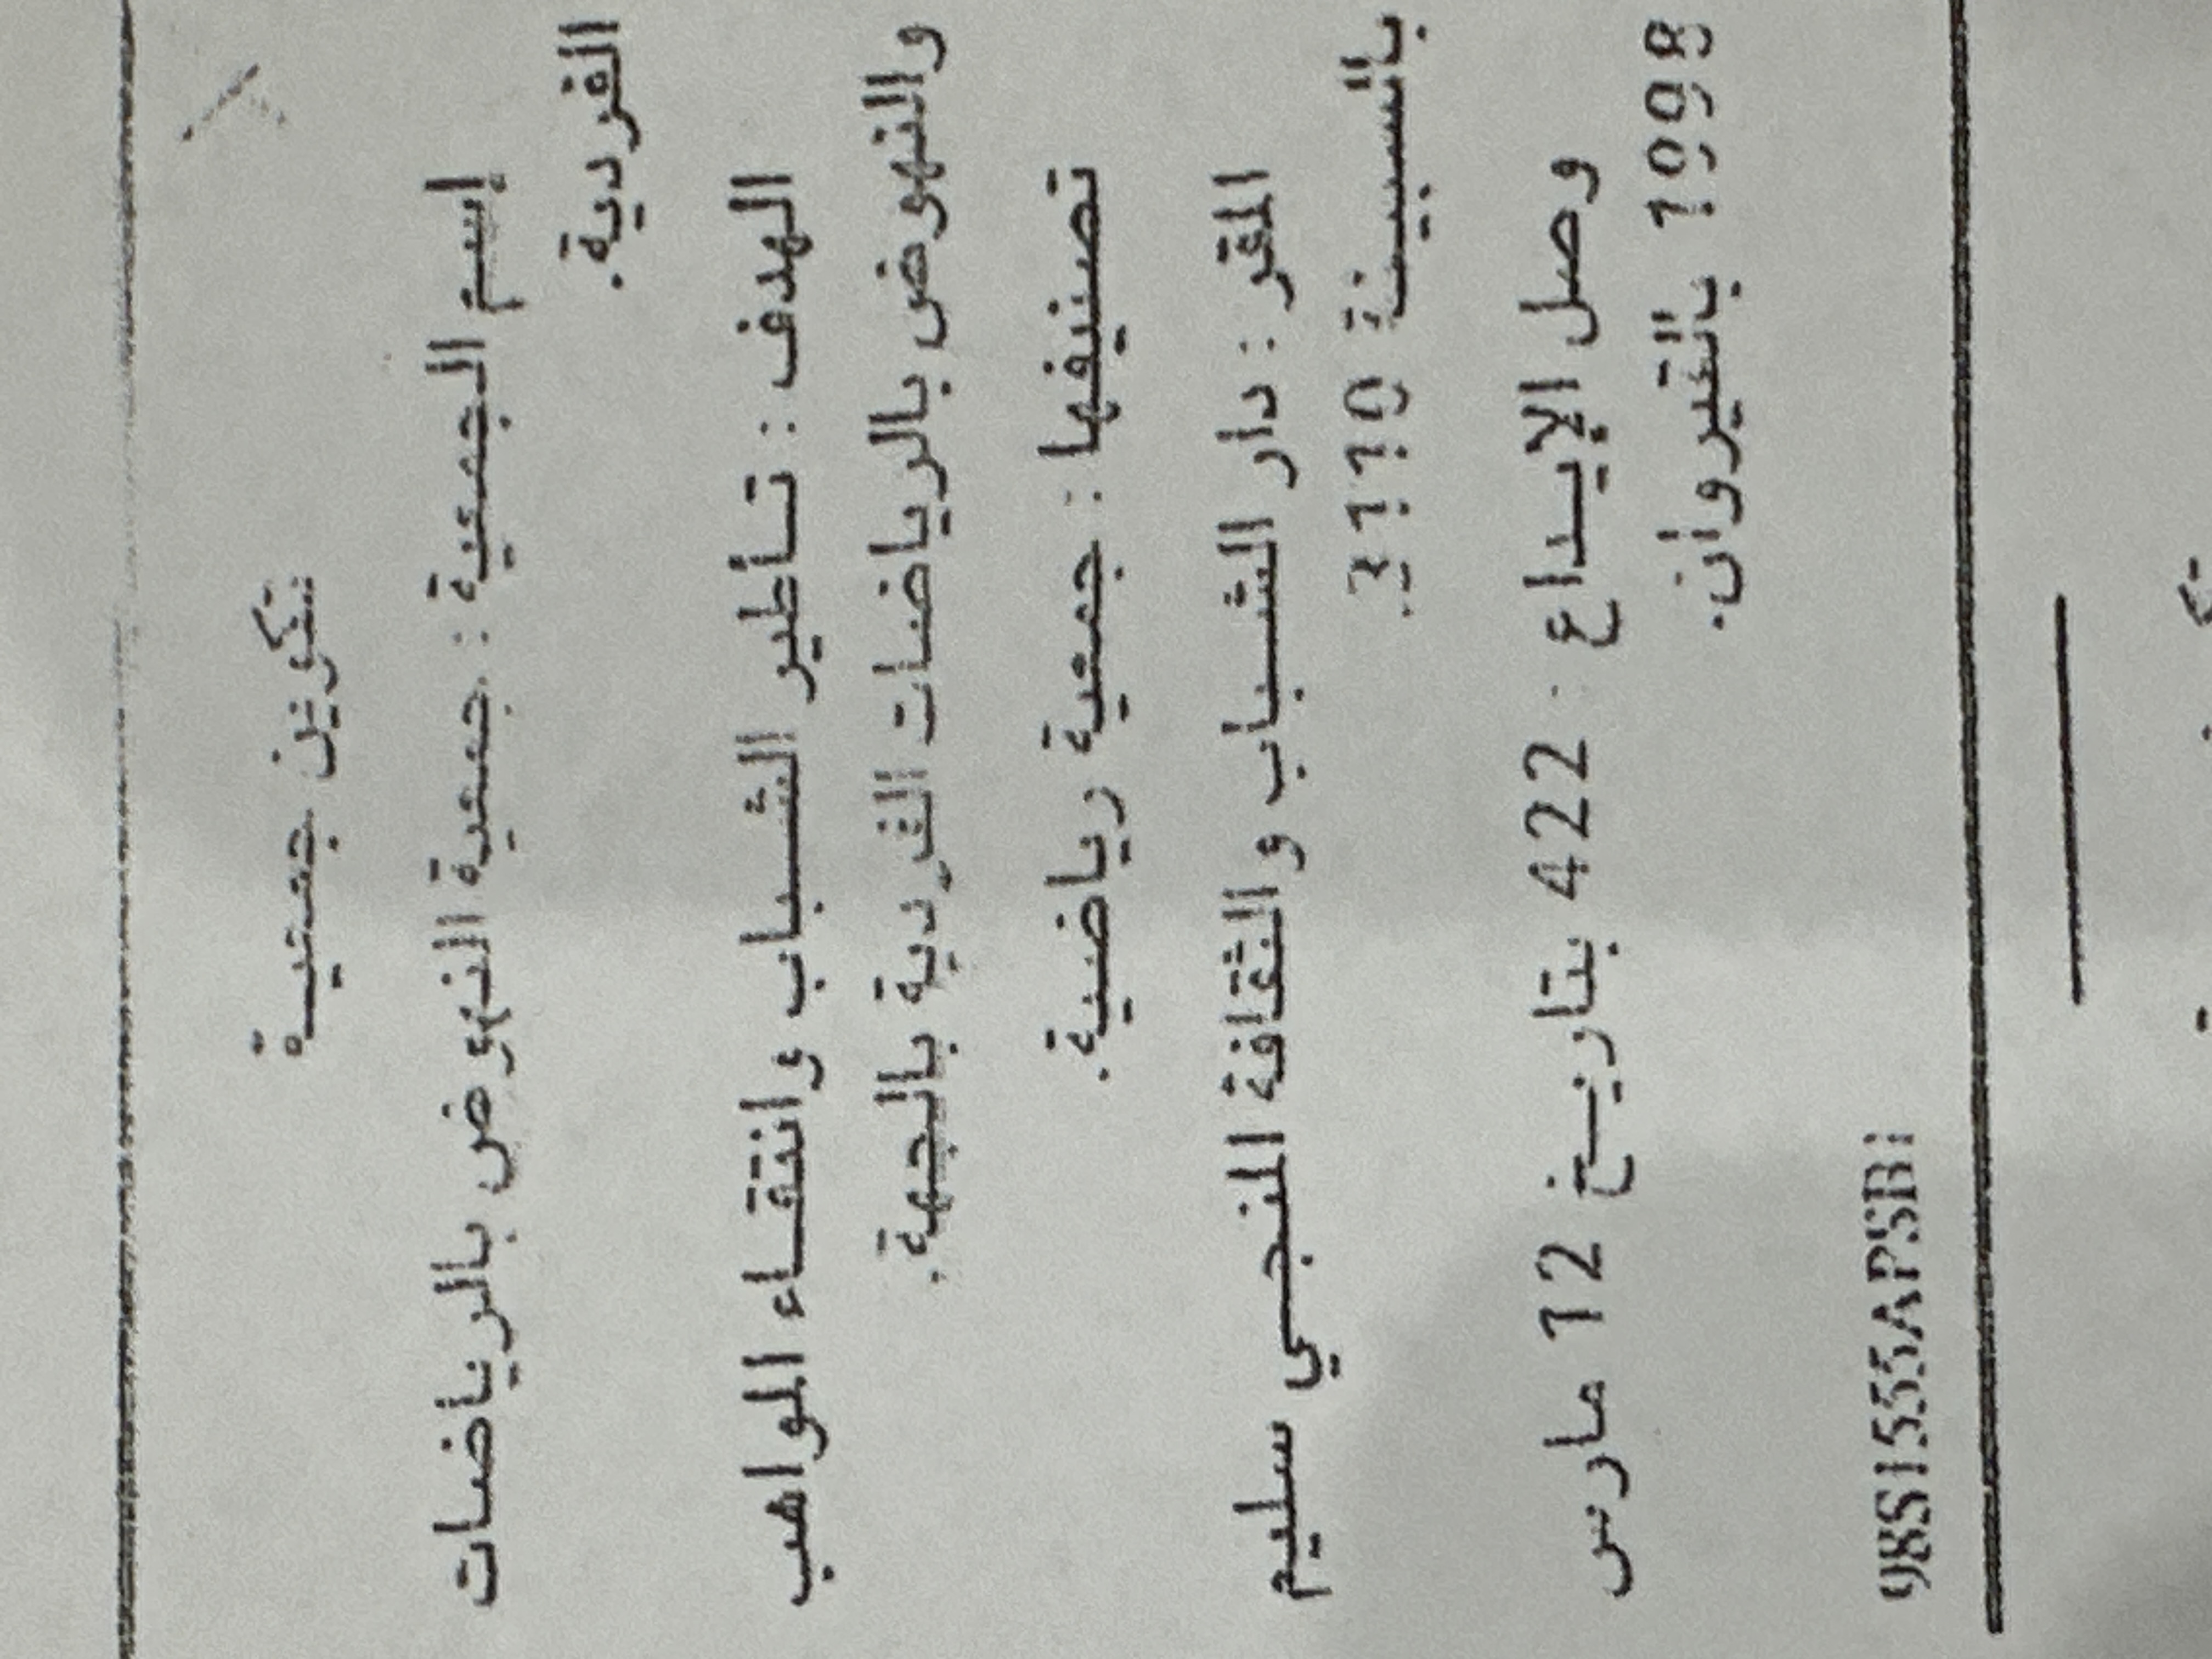 تكوين جمعية
إسم الجمعية : جمعية النهوض بالرياضات
الفردية.
الهدف : تأطير الشباب وانتقاء المواهب
والنهوض بالرياضات الفردية بالجهة.
تصنيفها : جمعية رياضية.
المقر : دار الشباب والثقافة المنجي سليم
بالسبيخة 3110.
وصل الإيداع : 422 بتاريخ 12 مارس
1998 بالقيروان.
98S1555APSB1